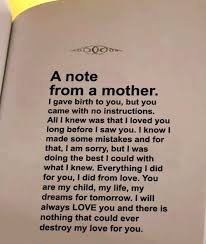 A note
from a mother.
I gave birth to you, but you
came with no instructions.
All I knew was that I loved you
long before I saw you. I know I
made some mistakes and for
that, I am sorry, but I was
doing the best I could with
what I knew. Everything I did
for you, I did from love. You
are my child, my life, my
dreams for tomorrow. I will
always LOVE you and there is
nothing that could ever
destroy my love for you.